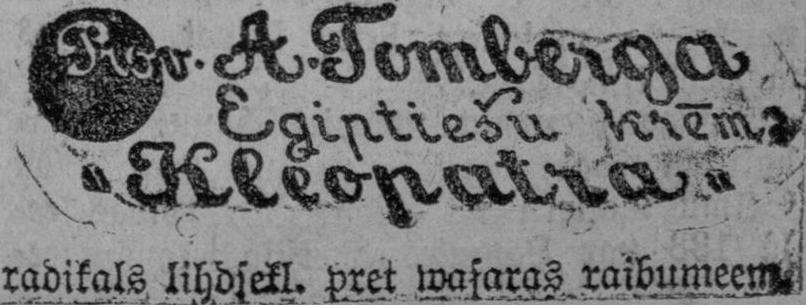 Prov. A. Tomberga
Egiptiešu krēms
„Kleopatra“
radikals lihdsekl. pret wasaras raibumeem.